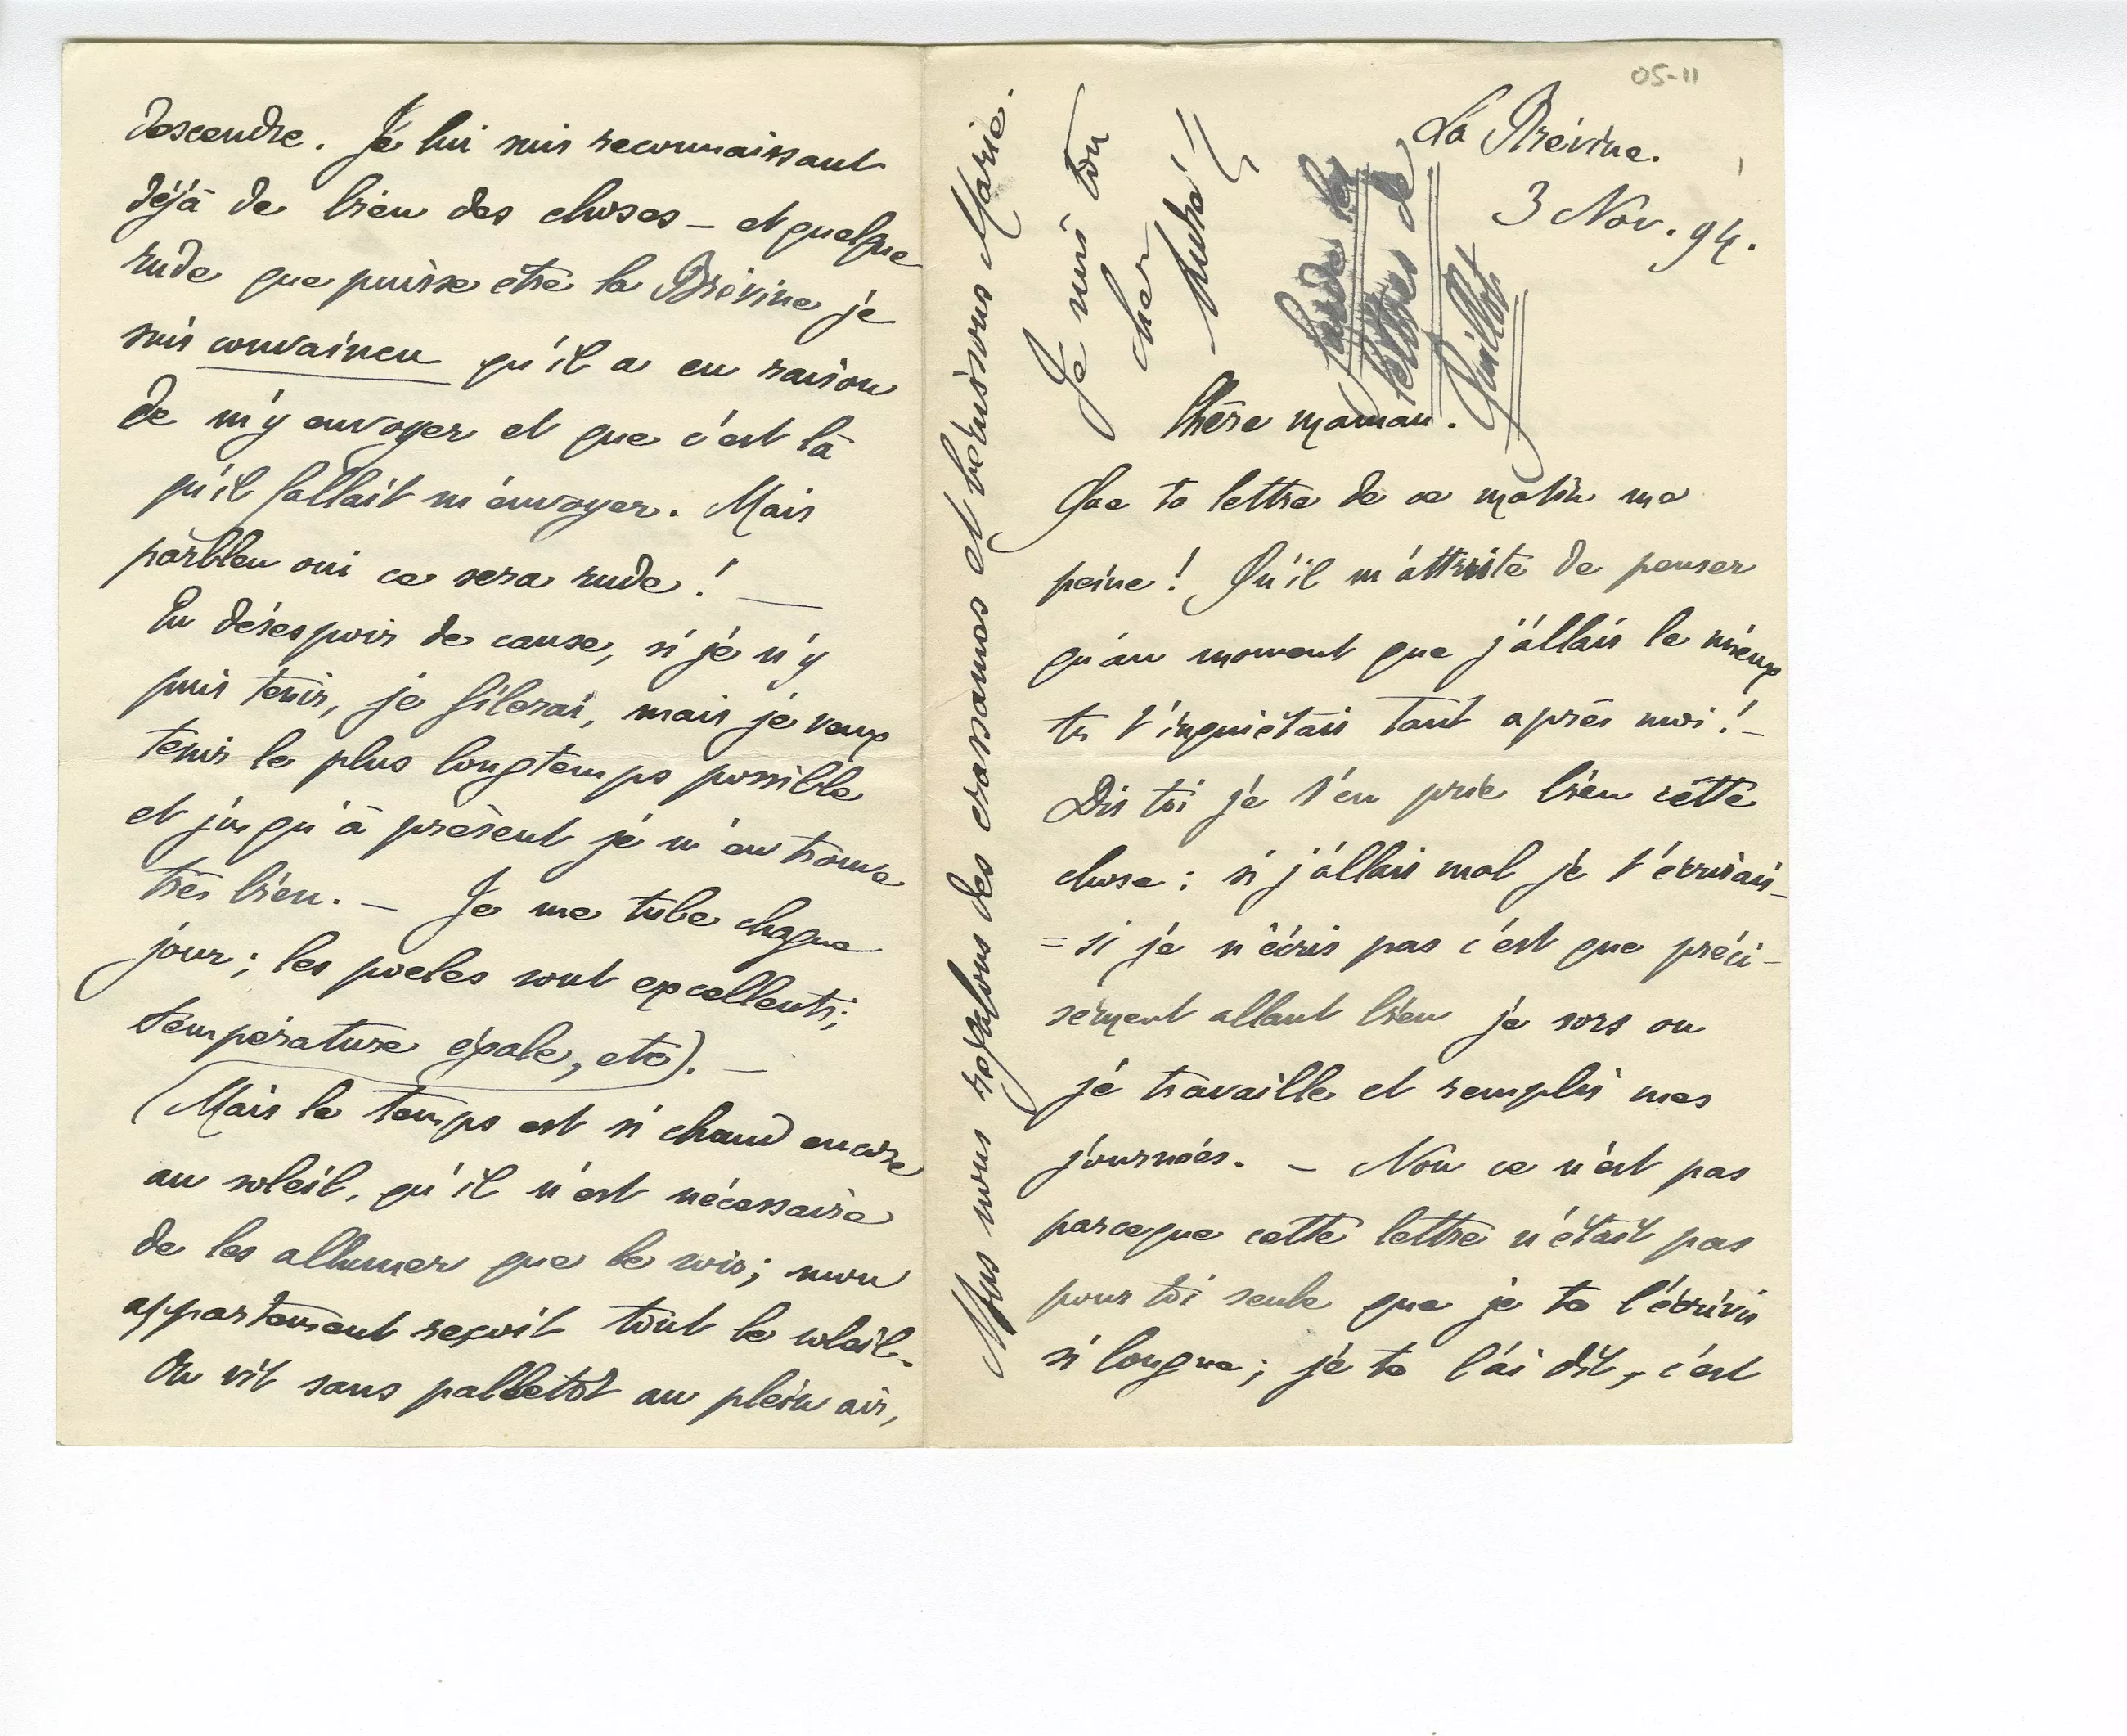 05-11
La Brévine.
3 Nov. 94.
Chère maman.
Que ta lettre de ce matin me
peine ! Qu'il m'attriste de penser
qu'au moment que j'allais le mieux
tu t'inquiétais tant après moi ! –
Dis toi je t'en prie bien cette
chose : si j'allais mal je t'écrirais –
= si je n'écris pas c'est que préci-
sément allant bien je sors ou
je travaille et remplis mes
journées. – Non ce n'est pas
parceque cette lettre n'était pas
pour toi seule que je te l'écrivis
si longue ; je te l'ai dit, c'est
descendre. Je lui suis reconnaissant
déjà de bien des choses – et quelque
rude que puisse etre la Brévine je
suis convaincu qu'il a eu raison
de m'y envoyer et que c'est là
qu'il fallait m'envoyer. Mais
parbleu oui ce sera rude ! —
En désespoir de cause, si je n'y
puis tenir, je filerai, mais je veux
tenir le plus longtemps possible
et jusqu'à présent je m'en trouve
très bien. – Je me tube chaque
jour ; les poeles sont excellents ;
température égale, etc). —
(Mais le temps est si chaud encore
au soleil, qu'il n'est nécessaire
de les allumer que le soir ; mon
appartement reçoit tout le soleil –
On vit sans palletot au plein air,
Nous nous régalons des crassanes et bénissons Marie.
Je suis ton
cher
André
Garde les
lettres de
Quillot